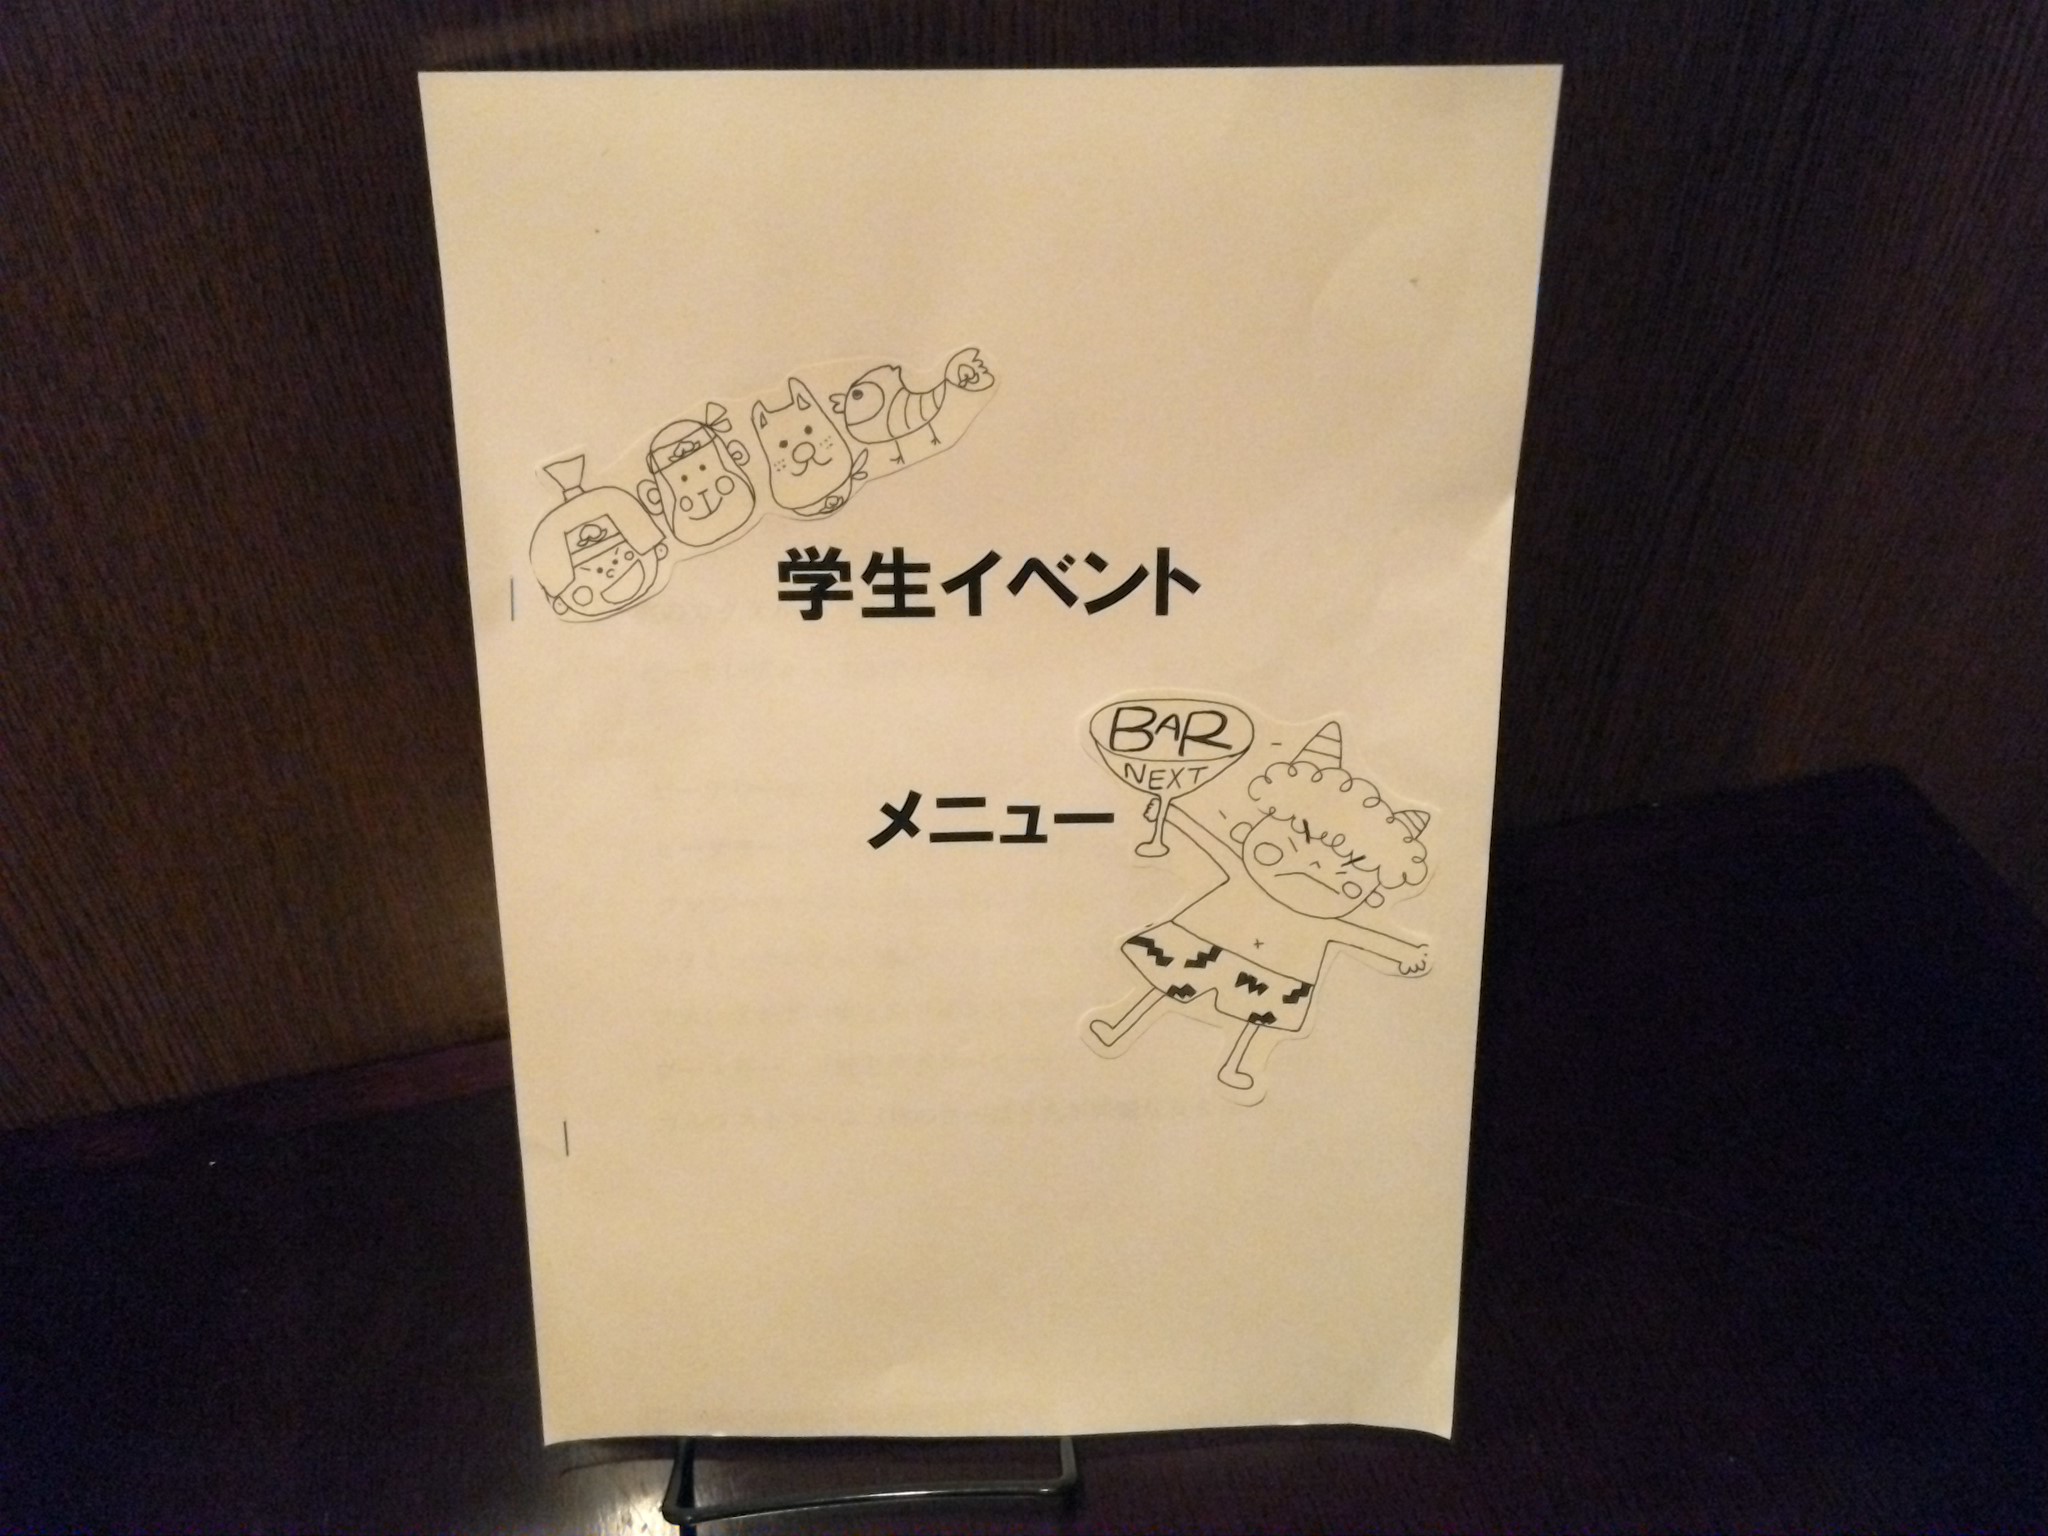 学生イベント
BAR
NEXT
メニュー